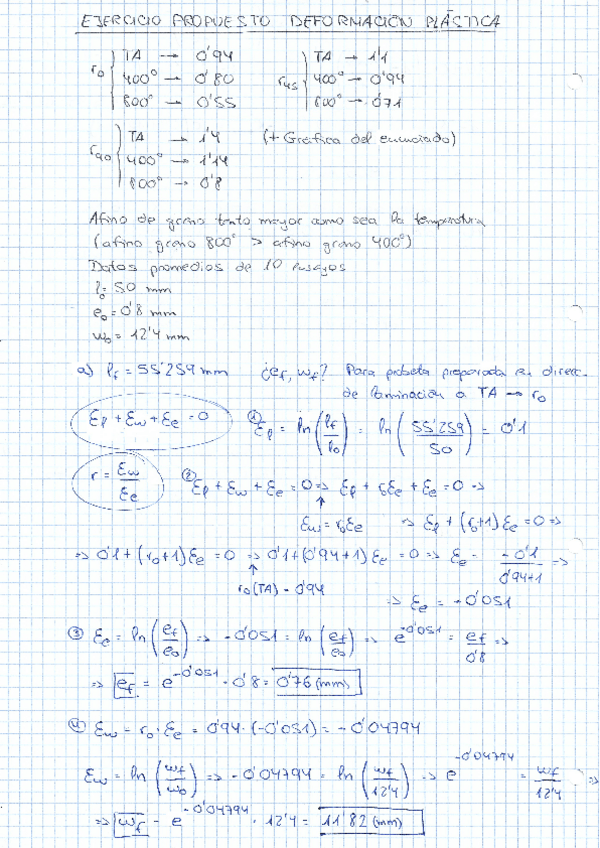 EJERCICIO PROPUESTO DEFORMACIÓN PLÁSTICA
r₀ { TA → 0'94
400° → 0'80
800° → 0'55
r₄₅ { TA → 1'1
400° → 0'94
800° → 0'71
r₉₀ { TA → 1'4
400° → 1'14
800° → 0'8
(+ Gráfica del enunciado)
Afino de grano tanto mayor como sea la temperatura
(afino grano 800° > afino grano 400°)
Datos promedios de 10 ensayos
l₀ = 50 mm
e₀ = 0'8 mm
w₀ = 12'4 mm
a) lf = 55'259 mm ¿ef, wf? Para probeta preparada en direcc.
de laminación a TA → r₀
εl + εw + εe = 0
① εl = ln(lf/l₀) = ln(55'259/50) = 0'1
r = εw/εe
② εl + εw + εe = 0 => εl + r₀εe + εe = 0 =>
↑
εw = r₀εe => εl + (r₀+1)εe = 0 =>
=> 0'1 + (r₀+1)εe = 0 => 0'1 + (0'94+1)εe = 0 => εe = -0'1/0'94+1 =>
↑
r₀(TA) = 0'94
=> εe = -0'051
③ εe = ln(ef/e₀) => -0'051 = ln(ef/e₀) => e^-0'051 = ef/0'8 =>
=> ef = e^-0'051 · 0'8 = 0'76 (mm)
④ εw = r₀·εe = 0'94·(-0'051) = -0'04794
εw = ln(wf/w₀) => -0'04794 = ln(wf/12'4) => e^-0'04794 = wf/12'4 =>
=> wf = e^-0'04794 · 12'4 = 11'82 (mm)